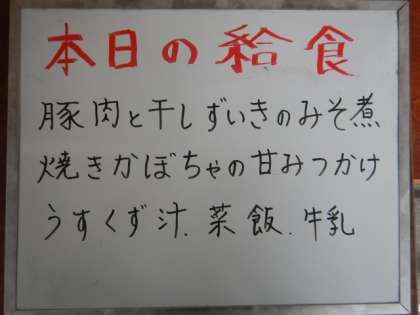 本日の給食
豚肉と干しずいきのみそ煮
焼きかぼちゃの甘みつかけ
うすくず汁.菜飯.牛乳